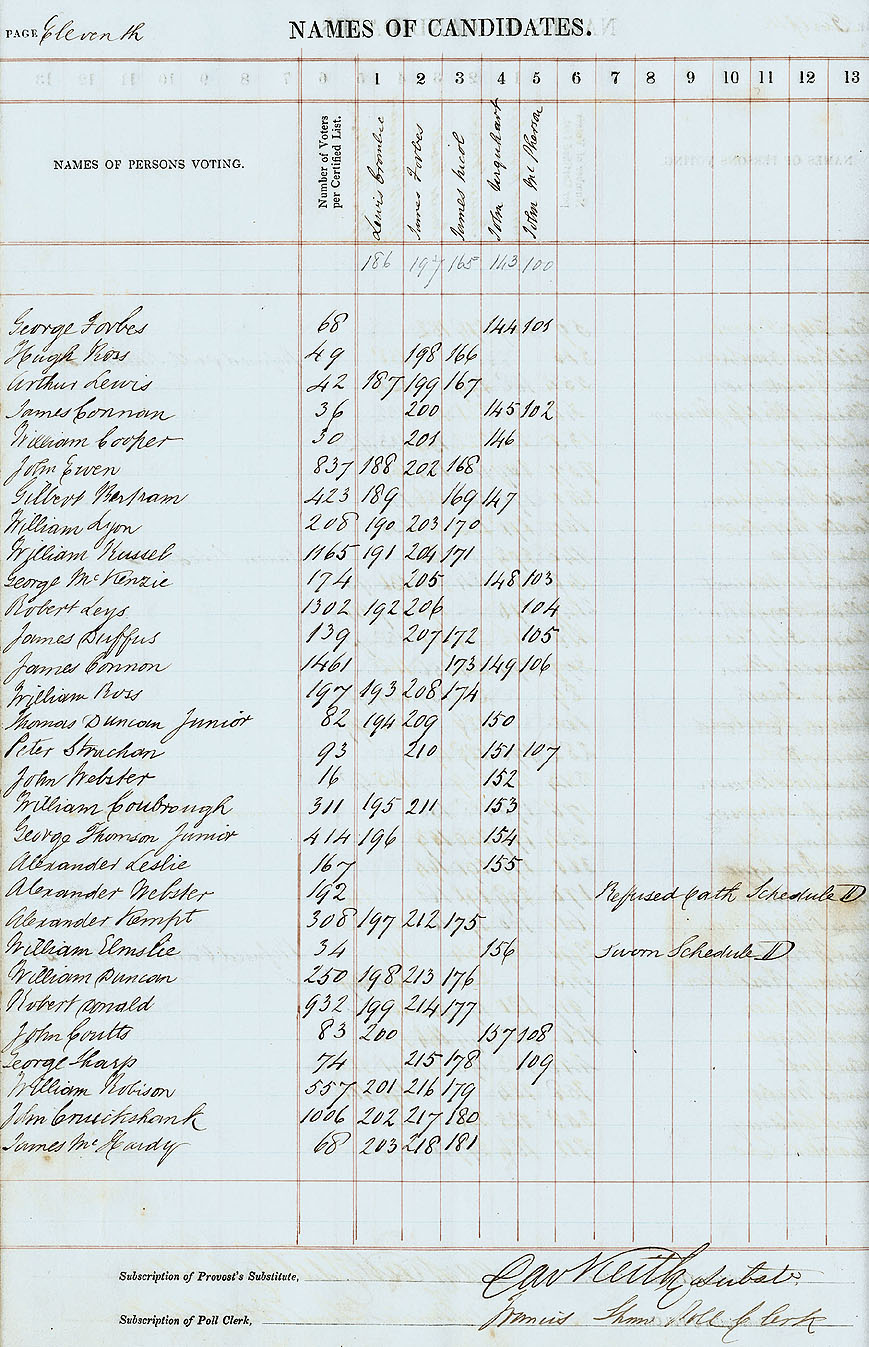 PAGE Eleventh NAMES OF CANDIDATES.
1 2 3 4 5 6 7 8 9 10 11 12 13
NAMES OF PERSONS VOTING. Number of Voters per Certified List. Lewis Crombie James Forbes James Nicol John Urquhart John McPherson
186 197 165 143 100
George Forbes 68 144 101
Hugh Ross 49 198 166
Arthur Lewis 42 187 199 167
James Connan 36 200 145 102
William Cooper 30 201 146
John Ewen 837 188 202 168
Gilbert Bertram 423 189 169 147
William Lyon 208 190 203 170
William Russel 1165 191 204 171
George McKenzie 174 205 148 103
Robert Leys 1302 192 206 104
James Duffus 139 207 172 105
James Connon 1461 173 149 106
William Ross 197 193 208 174
Thomas Duncan Junior 82 194 209 150
Peter Strachan 93 210 151 107
John Webster 16 152
William Coubrough 311 195 211 153
George Thomson Junior 414 196 154
Alexander Leslie 167 155
Alexander Webster 192 Refused Oath Schedule D
Alexander Kempt 308 197 212 175
William Elmslie 34 156 Sworn Schedule D
William Duncan 250 198 213 176
Robert Donald 932 199 214 177
John Coutts 83 200 157 108
George Sharp 74 215 178 109
William Robison 557 201 216 179
John Cruickshank 1006 202 217 180
James McHardy 68 203 218 181
Subscription of Provost's Substitute, Keith Subste.
Subscription of Poll Clerk, Francis Shaw Poll Clerk